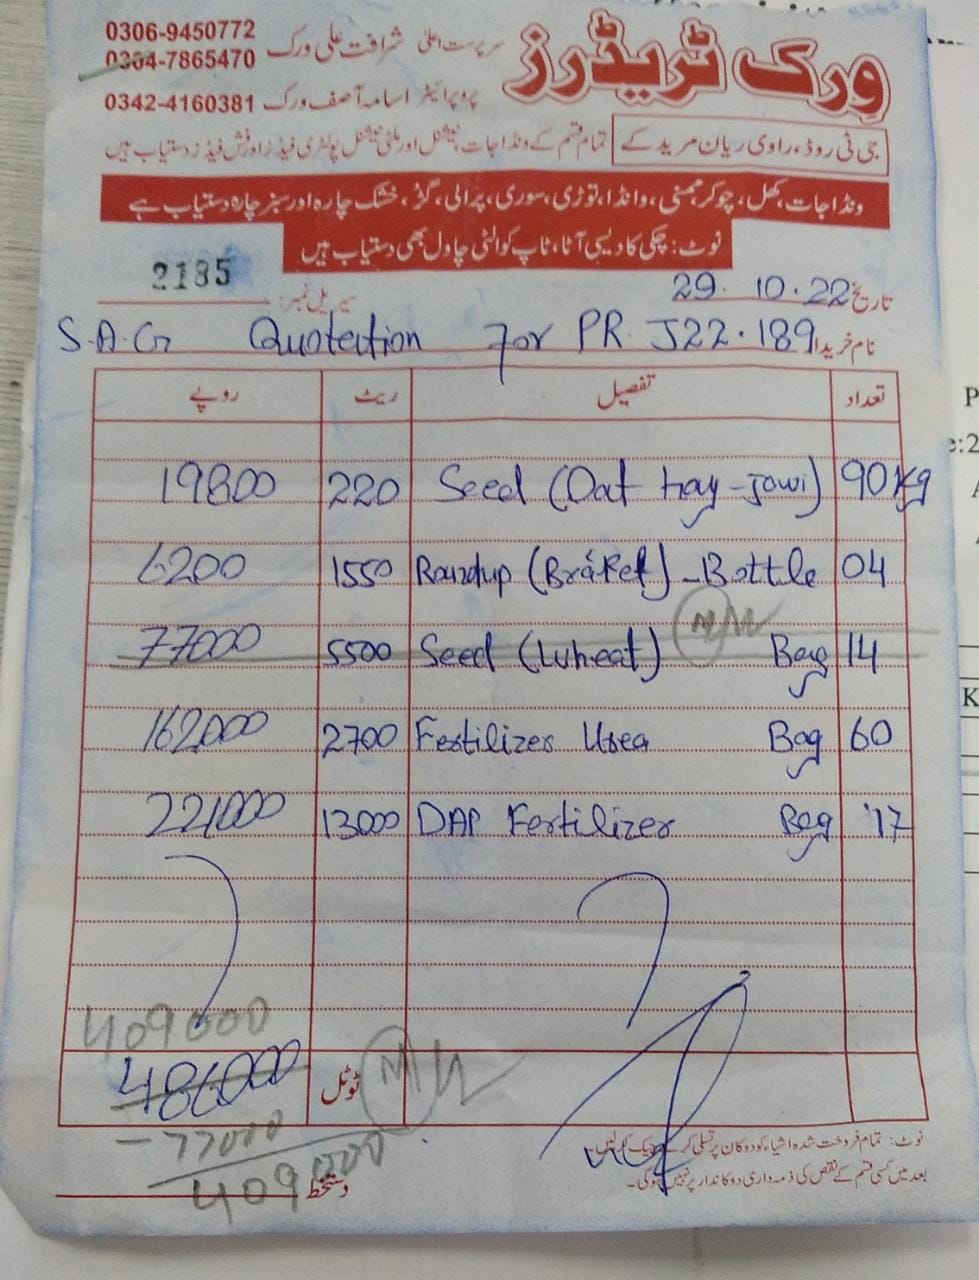 ورک ٹریڈرز
سرپرست اعلیٰ شرافت علی ورک 0306-9450772
0304-7865470
پروپرائیٹر اسامہ آصف ورک 0342-4160381
جی ٹی روڈ، راوی ریان مریدکے تمام قسم کے ونڈا جات نیشنل اور ملٹی نیشنل پولٹری فیڈز اور فش فیڈز دستیاب ہیں
ونڈا جات، کھل، چوکر، مکئی، وانڈا، توڑی، سوری، پرالی، گڑ، خشک چارہ اور سبز چارہ دستیاب ہے
نوٹ: چکی کا دیسی آٹا، ٹاپ کوالٹی چاول بھی دستیاب ہیں
تاریخ 29. 10. 22 سیریل نمبر: 2185
نام خریدار S.A.G Quotection For PR J22.189
تعداد تفصیل ریٹ روپے
19800 220 Seed (Oat hay-jowi) 90 Kg
6200 1550 Roundup - Bottle 04
77000 5500 Seed (Wheat) Bag 14
162000 2700 Fertilizer Urea Bag 60
221000 13000 DAP Fertilizer Bag 17
409000
486000 ٹوٹل
-77000
409000
دستخط
نوٹ: تمام فروخت شدہ اشیاء کو دوکان پر تسلی کر کے چیک کر لیں۔
بعد میں کسی قسم کے نقص کی ذمہ داری دوکاندار پر نہیں ہو گی۔